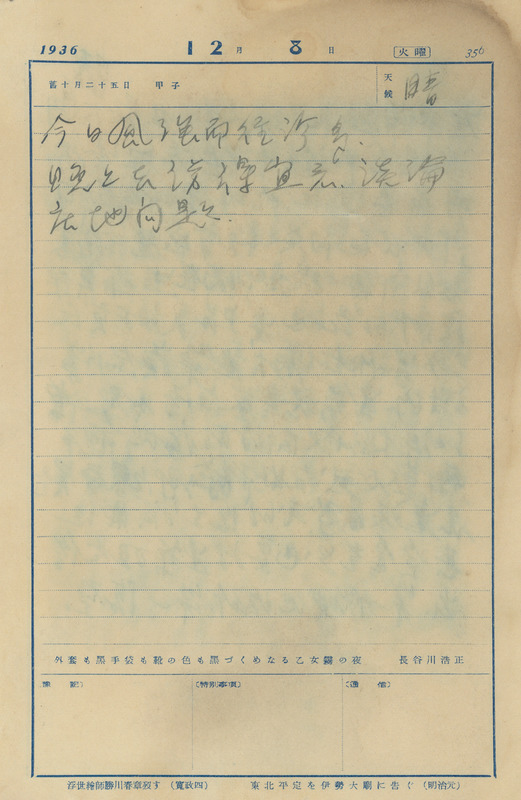 1936 12月 8日 〔火曜〕 356
舊十月二十五日 甲子 天候 晴
今日風強而
晚上去訪 宜 談論
地問題.
外套も黒手袋も靴の色も黒づくめなる乙女霧の夜 長谷川浩正
〔特別事項〕 〔通信〕
浮世繪師勝川春章歿す (寛政四) 東北平定を伊勢大廟に告ぐ (明治元)